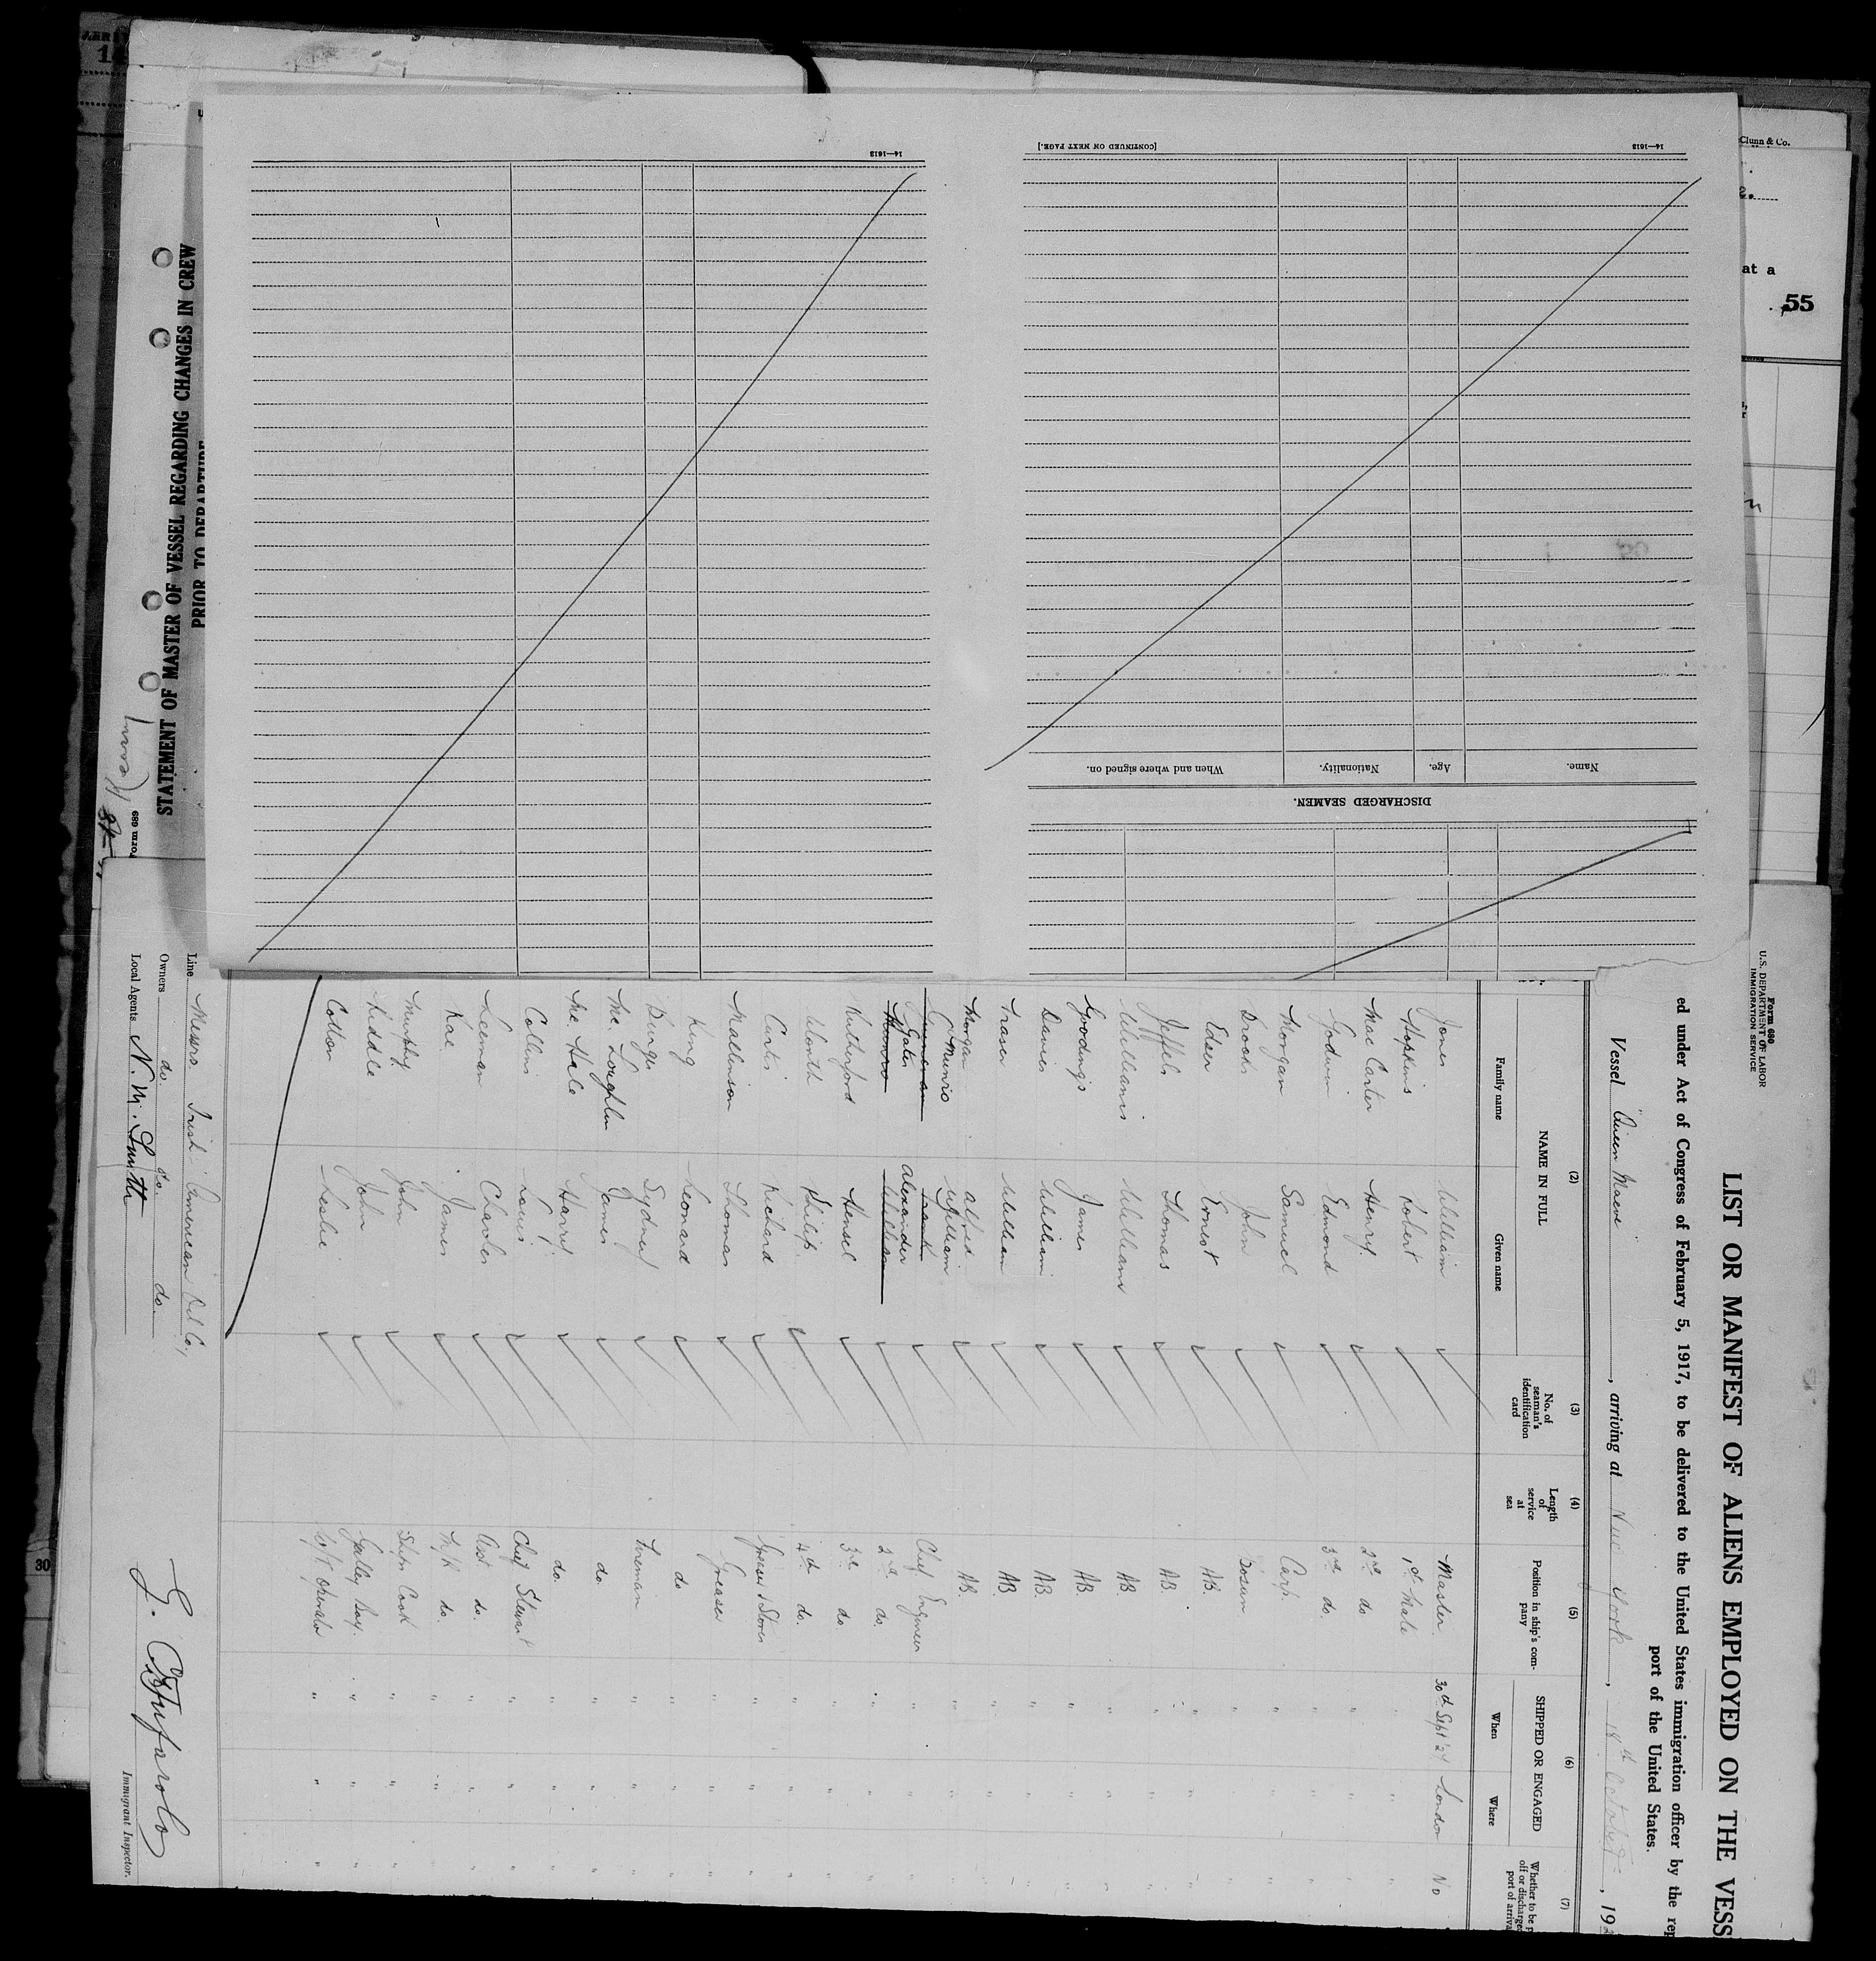 Form 680
U.S. DEPARTMENT OF LABOR
IMMIGRATION SERVICE
LIST OR MANIFEST OF ALIENS EMPLOYED ON THE VESS
ed under Act of Congress of February 5, 1917, to be delivered to the United States immigration officer by the rep
port of the United States.
Vessel Queen Maeve, arriving at New York, 18th October, 192
(2) (3) (4) (5) (6) (7)
NAME IN FULL
Family name Given name
No. of seaman's identification card
Length of service at sea
Position in ship's company
SHIPPED OR ENGAGED
When Where
Whether to be p
off or discharged
port of arrival
Jones William Master 30th Sept '24 London No
Hopkins Robert 1st Mate " " "
Mac Carter Henry 2nd do " " "
Godwin Edmond 3rd do. " " "
Morgan Samuel Carp. " " "
Brooks John Bosun " " "
Edser Ernest AB. " " "
Jeffels Thomas AB. " " "
Williams William AB. " " "
Goodings James AB. " " "
Davies William AB. " " "
Fraser William AB. " " "
Morgan Alfred AB. " " "
Munro William Chief Engineer " " "
Gates Alexander 2nd do. " " "
Munro William
Rutherford Hensel 3rd do " " "
Worth Philip 4th do. " " "
Curtis Richard Greaser & Storer " " "
Mallinson Thomas Greaser " " "
King Leonard do " " "
Burge Sydney Fireman " " "
Mc. Loughlin James do " " "
Mc. Hale Harry do. " " "
Collins Louis Chief Steward " " "
Leeman Charles Asst do. " " "
Rae James do. " " "
Murphy John Ships Cook " " "
Riddle John Galley Boy. " " "
Cotton Leslie " " "
Line Messrs. Irish American Oil Co,
Owners do. do. do.
Local Agents N. M. Smith
Immigrant Inspector.
STATEMENT OF MASTER OF VESSEL REGARDING CHANGES IN CREW
PRIOR TO DEPARTURE
Form 689
DISCHARGED SEAMEN.
Name. Age. Nationality. When and where signed on.
14—1613
[CONTINUED ON NEXT PAGE.]
14—1613
Clunn & Co.
at a
55
30
14